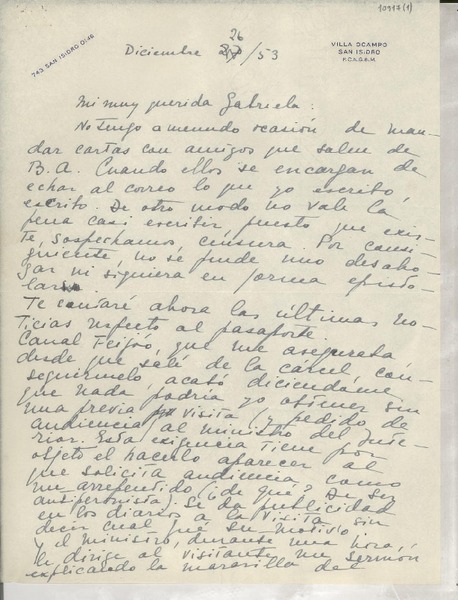 10317(1)
743 SAN ISIDRO 0046
26
Diciembre 27/53
VILLA OCAMPO
SAN ISIDRO
F.C.N.G.B.M.
Mi muy querida Gabriela:
No tengo a menudo ocasión de man-
dar cartas con amigos que salen de
B.A. Cuando ellos se encargan de
echar al correo lo que yo escribo,
escribo. De otro modo no vale la
pena casi escribir, puesto que exis-
te, sospechamos, censura. Por consi-
guiente, no se puede uno desaho-
gar ni siquiera en forma episto-
lar.
Te contaré ahora las últimas no-
ticias respecto al pasaporte.
Canal Feijóo, que me aseguraba
desde que salí de la cárcel con-
seguírmelo, acabó diciéndome
que nada podría yo obtener sin
una previa visita (y pedido de
audiencia) al ministro del Inte-
rior. Esta exigencia tiene por
objeto el hacerlo aparecer al
que solicita audiencia como
un arrepentido (¿de qué? De ser
antiperonista). Se da publicidad
en los diarios a la visita sin
decir cual fué su motivo
y el ministro, durante una hora,
le dirige al visitante un sermón
explicando la maravilla del